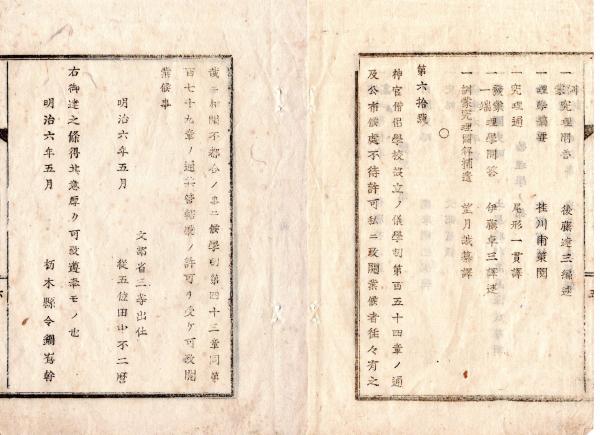 一訓蒙究理問答 後藤達三編述
一理學提要 桂川甫策閲
一究理通 尾形一貫譯
一啓蒙理學問答 伊藤卓三譯述
一訓蒙究理圖解補遺 望月誠纂譯
○
第六拾號
神官僧侶學校設立ノ儀學制第百五十四章ノ通
及公布候處不待許可私ニ致開業候者往々有之
哉ニ相聞不都合ノ事ニ候學制第四十三章同第
百七十九章ノ通其管轄廳ノ許可ヲ受ケ可致開
業候事
文部省三等出仕
明治六年五月 從五位田中不二麿
右御達之條得其意厚ク可致遵奉モノ也
明治六年五月 栃木縣令鍋島幹
六
五